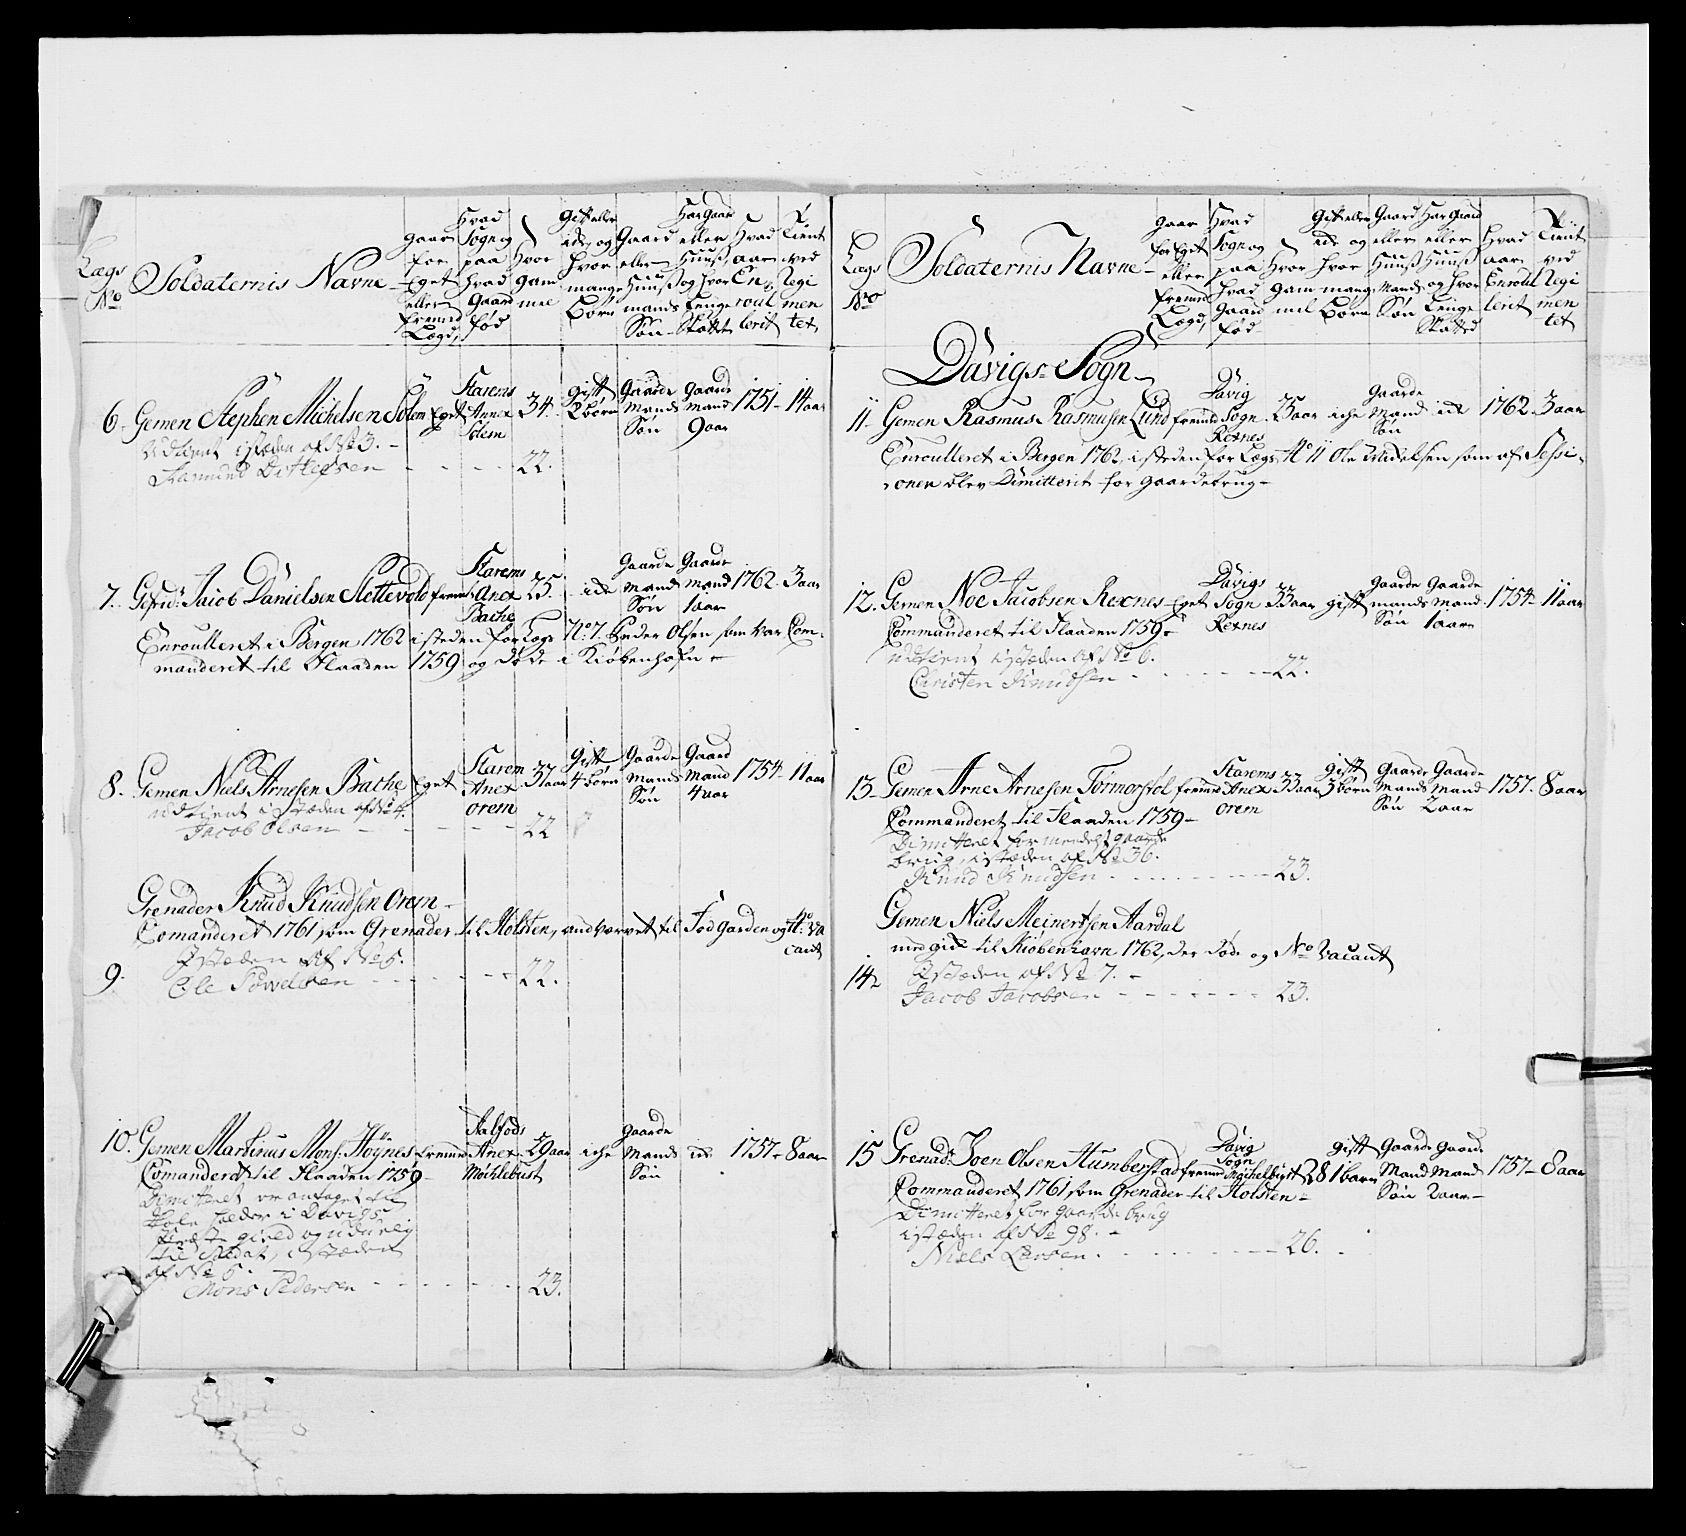 Lægs No
Soldaternis Navne
gaar for Eget eller fremed Lægd,
Hvad Sogn og paa hvad Gaard fød
Hvor gam mel
Gift eller ide, og hvor mange Børn
Gaard eller Huuß mands Søn
Har gaard eller Huuß og hvor Lenge
Hvad aar En, roul lerit
Tient ved Regi men tet
6. Gemen Stephen Michelsen Solem Eget
Skarems Annex Solem
34.
gift 2 børn
Gaarde Mands Søn
Gaarde mand 9 aar
1751
14 aar
Udtient istæden af No 3.
22.
7. Gefrid: Jacob Danielsen Slettevold fremd
Skarems Anex Bache
25.
ide
Gaarde mands Søn
Gaarde mand 1 aar
1762.
3 aar
Enroulleret i Bergen 1762 isteden for Lægs No: 7. Peder Olsen, som var Com-
manderet til Flaaden 1759 og døde i Kiøbenhafn
8. Gemen Niels Arnesen Bache Eget
Skarem Anex orem
37 aar
Gift 4 børn
Gaarde Mands Søn
Gaard Mand 4 aar
1754
11 aar
udtient i stæden af No 4.
Jacob Olsen
22
Grenader Knud Knudsen Orem
Comanderet 1761, som Grenader til Holsten, andværvet til Fod Garden og No: va
cant
9.
Istæden af No 5.
Ole
22.
10. Gemen Martinus Mons: Høynes fremed
Aalfods Anex Mochlebust
29 aar
iche
Gaarde Mands Søn
ide
1757
8 aar
Comanderet til Flaaden 1759
Dimitteret
i Davigs
og uduelig
til Soldat, istæden
af No 5.
Mons Pedersen
23.
Lægs No
Soldaternis Navne
gaar for Eget eller fremed Lægd,
Hvad Sogn og paa hvad Gaard fød
Hvor gam mel
Gift eller ide og hvor mange Børn
Gaard eller Huuß Mands Søn
Har Gaard eller Huuß og hvor Lenge
Hvad aar Enroul lerit
Tient ved Regi men tet
Davigs Sogn
11. Gemen Rasmus Rasmusen Lund fremed
Davig Sogn Rexnes
25 aar
iche
Gaarde Mand Søn
ide
1762
3 aar
Enroulleret i Bergen 1762, isteden for Lægs No 11 Ole som af Sessi-
onen blev Dimitterit for gaardebrug
12. Gemen Noe Jacobsen Rexnes Eget
Davigs Sogn Rexnes
33 aar
gift
gaarde mands Søn
Gaarde mand 1 aar
1754
11 aar
Commanderet til Flaaden 1759
udtient istæden af No 6.
Christen Knudsen
22.
13. Gemen Arne Arnesen fremed
Skarems Anex orem
33 aar
gift 3 børn
Gaarde Mands Søn
Gaarde mand 2 aar
1757.
8 aar
Commanderet til Flaaden 1759
Dimitteret formedelst gaarde
brug, istæden af No 36.
Knud Knudsen
23.
Gemen Niels Meinertsen Aardal
til Kiøbenhavn 1762, der døde og No vacant
14
Istæden af No 7.
Jacob Jacobsen
23.
15 Grenad: Joen Olsen Humberstad fremd
Davig Sogn
28
gift 1 barn
Gaarde Mand Søn
Gaarde Mand 2 aar
1757
8 aar
Commanderet 1761, som Grenader til Holsten
Dimitteret for gaarde brug
istæden af No 98.
Niels Larsen
26.